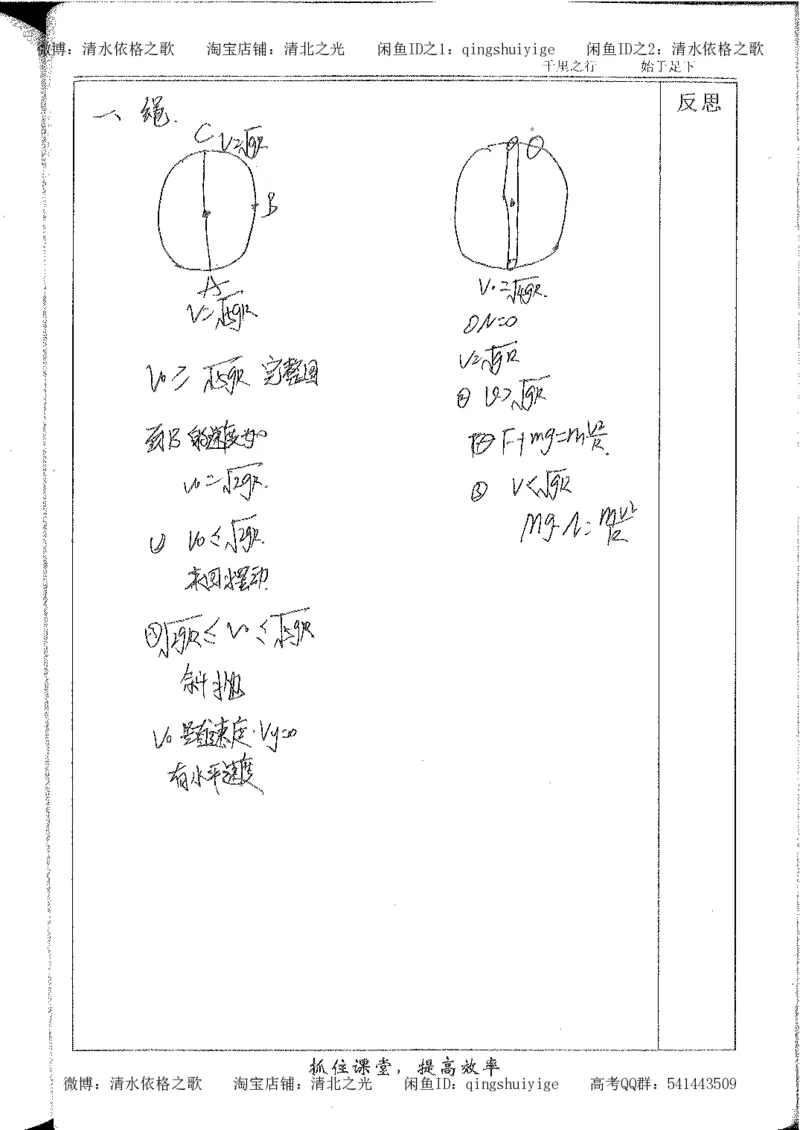 微博：清水依格之歌 淘宝店铺：清北之光 闲鱼ID之1：qingshuiyige 闲鱼ID之2：清水依格之歌
千里之行 始于足下
反思
一、绳.
C V=√gR
B
A
V=√5gR
V₀≥√5gR 完整圆
到B的速度为0
V₀=√2gR.
① V₀≤√2gR.
来回摆动
②√2gR≤V₀≤√5gR
斜抛
V₀是有速度·Vy=0
有水平速度
V₀=√4gR.
①N=0
V=√gR
② V>√gR
F+mg=mV²/R.
③ V<√gR
Mg-N=mV²/R
抓住课堂，提高效率
微博：清水依格之歌 淘宝店铺：清北之光 闲鱼ID：qingshuiyige 高考QQ群：541443509